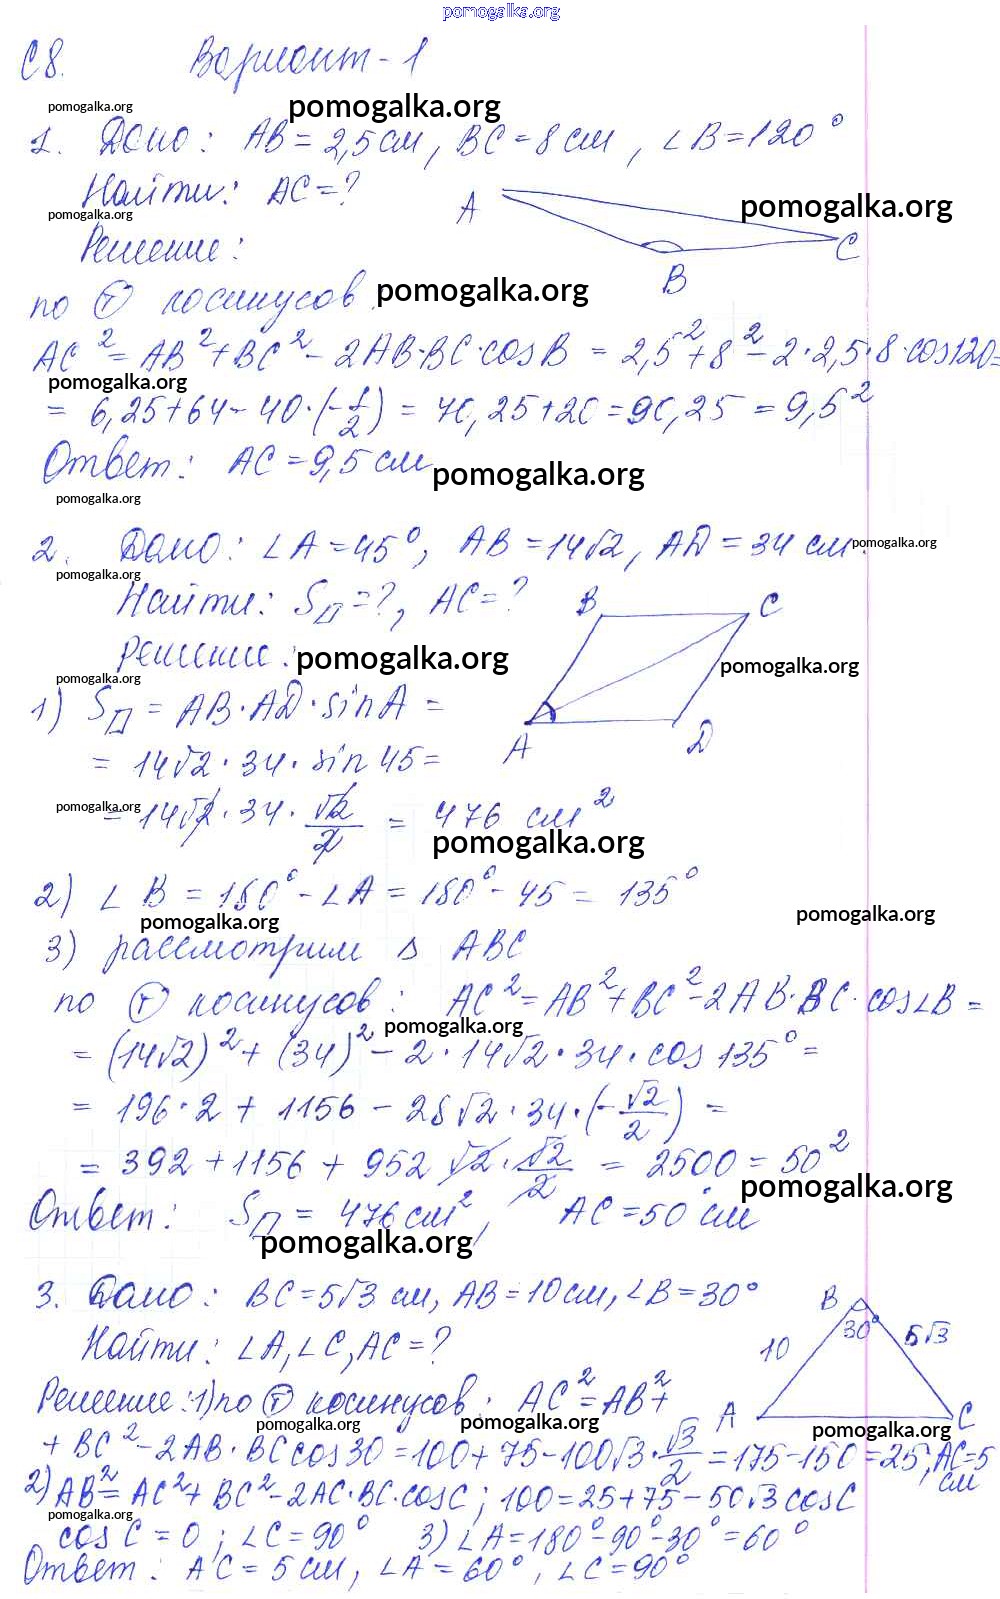 pomogalka.org
С8. Вариант-1
pomogalka.org pomogalka.org
1. Дано: AB = 2,5 см, BC = 8 см, ∠B = 120°
Найти: AC = ?
A
pomogalka.org pomogalka.org
Решение:
C
B
по Ⓣ косинусов. pomogalka.org
AC² = AB² + BC² - 2AB·BC·cos B = 2,5² + 8² - 2·2,5·8·cos120=
pomogalka.org
= 6,25+64-40·(-1/2) = 70,25+20 = 90,25 = 9,5²
Ответ: AC = 9,5 см
pomogalka.org
pomogalka.org
2. Дано: ∠A = 45°, AB = 14√2, AD = 34 см.
pomogalka.org
pomogalka.org
Найти: S▱ = ?, AC = ?
B C
Решение:
pomogalka.org pomogalka.org
pomogalka.org
1) S▱ = AB·AD·sin A =
A D
= 14√2·34·sin 45 =
pomogalka.org
= 14√2·34·√2/2 = 476 см²
pomogalka.org
2) ∠B = 180° - ∠A = 180° - 45 = 135°
pomogalka.org pomogalka.org
3) рассмотрим △ ABC
по Ⓣ косинусов: AC² = AB² + BC² - 2AB·BC·cos∠B =
pomogalka.org
= (14√2)² + (34)² - 2·14√2·34·cos 135° =
= 196·2 + 1156 - 28√2·34·(-√2/2) =
= 392 + 1156 + 952√2·√2/2 = 2500 = 50²
pomogalka.org
Ответ: S▱ = 476 см², AC = 50 см
pomogalka.org
3. Дано: BC = 5√3 см, AB = 10 см, ∠B = 30°
B
30°
10
5√3
A
C
Найти: ∠A, ∠C, AC = ?
Решение: 1) по Ⓣ косинусов. AC² = AB² +
pomogalka.org pomogalka.org pomogalka.org
+ BC² - 2AB·BC cos 30 = 100 + 75 - 100√3·√3/2 = 175-150 = 25; AC=5 см
2) AB² = AC² + BC² - 2AC·BC·cos C; 100 = 25 + 75 - 50√3 cos C
pomogalka.org
cos C = 0; ∠C = 90° 3) ∠A = 180° - 90° - 30° = 60°
Ответ: AC = 5 см, ∠A = 60°, ∠C = 90°